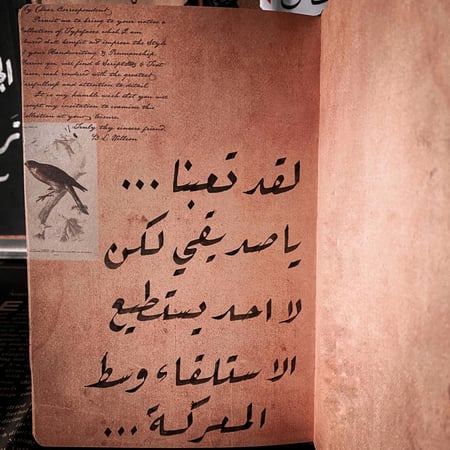 My Dear Correspondent,
Permit me to bring to your notice a
Collection of Typefaces which I am
assured shall benefit and improve the Style
of your Handwriting & Penmanship.
Herein you will find 6 Script & Text
Faces, each rendered with the greatest
carefullness and attention to detail.
It is my humble wish that you will
accept my invitation to examine this
Collection at your leisure.
Truly thy sincere friend,
لقد تعبنا ...
يا صديقي لكن
لا احد يستطيع
الاستلقاء وسط
المعركة ...